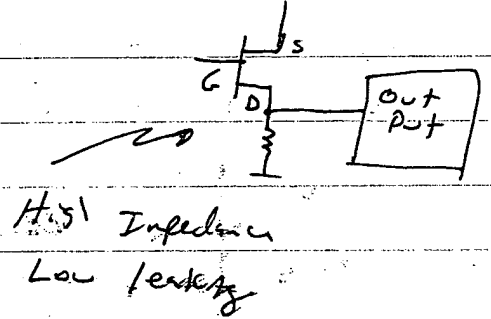 S
G
D
Out
Put
High Impedance
Low leakage